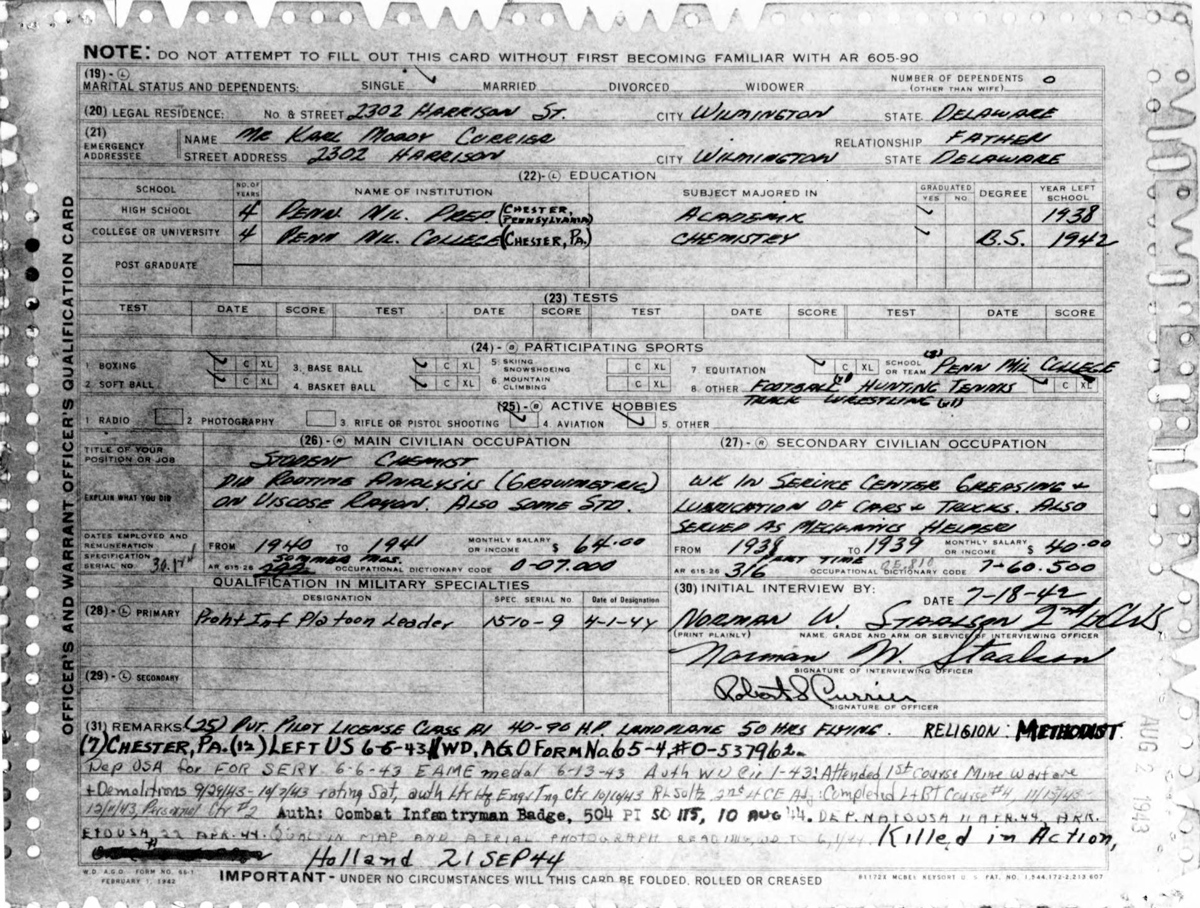 NOTE: DO NOT ATTEMPT TO FILL OUT THIS CARD WITHOUT FIRST BECOMING FAMILIAR WITH AR 605-90
(19)-L MARITAL STATUS AND DEPENDENTS: SINGLE ✓ MARRIED DIVORCED WIDOWER NUMBER OF DEPENDENTS (OTHER THAN WIFE) 0
(20) LEGAL RESIDENCE: No. & STREET 2302 HARRISON ST. CITY WILMINGTON STATE DELAWARE
(21) EMERGENCY ADDRESSEE NAME MR KARL MOODY CURRIER RELATIONSHIP FATHER
STREET ADDRESS 2302 HARRISON CITY WILMINGTON STATE DELAWARE
(22)-L EDUCATION
SCHOOL NO. OF YEARS NAME OF INSTITUTION SUBJECT MAJORED IN GRADUATED YES NO DEGREE YEAR LEFT SCHOOL
HIGH SCHOOL 4 PENN. MIL. PREP (CHESTER, PENNSYLVANIA) ACADEMIK ✓ 1938
COLLEGE OR UNIVERSITY 4 PENN MIL. COLLEGE (CHESTER, PA.) CHEMISTRY ✓ B.S. 1942
POST GRADUATE —
(23) TESTS
TEST DATE SCORE TEST DATE SCORE TEST DATE SCORE TEST DATE SCORE
(24)-R PARTICIPATING SPORTS
1 BOXING ✓ C XL 3. BASE BALL ✓ C XL 5. SKIING SNOWSHOEING C XL 7. EQUITATION ✓ C XL SCHOOL OR TEAM (8) PENN MIL COLLEGE
2 SOFT BALL ✓ C XL 4. BASKET BALL ✓ C XL 6. MOUNTAIN CLIMBING C XL 8. OTHER FOOTBALL HUNTING TENNIS ✓ C XL
TRACK WRESTLING
(25)-R ACTIVE HOBBIES
1 RADIO 2 PHOTOGRAPHY 3. RIFLE OR PISTOL SHOOTING ✓ 4. AVIATION ✓ 5. OTHER
(26)-R MAIN CIVILIAN OCCUPATION (27)-R SECONDARY CIVILIAN OCCUPATION
TITLE OF YOUR POSITION OR JOB STUDENT CHEMIST
EXPLAIN WHAT YOU DID DID ROUTINE ANALYSIS (GRAVIMETRIC) WK IN SERVICE CENTER GREASING &
ON VISCOSE RAYON. ALSO SOME STD. LUBRICATION OF CARS & TRUCKS. ALSO
SERVED AS MECHANICS HELPER
DATES EMPLOYED AND REMUNERATION FROM 1940 TO 1941 MONTHLY SALARY OR INCOME $ 64.00 FROM 1938 TO 1939 MONTHLY SALARY OR INCOME $ 40.00
SUMMER MOS. PART TIME
SPECIFICATION SERIAL NO. AR 615-26 OCCUPATIONAL DICTIONARY CODE 0-07.000 AR 615-26 316 OCCUPATIONAL DICTIONARY CODE 7-60.500
QUALIFICATION IN MILITARY SPECIALTIES (30) INITIAL INTERVIEW BY: DATE 7-18-42
DESIGNATION SPEC. SERIAL NO. Date of Designation
(28)-L PRIMARY Proht Inf Platoon Leader 1510-9 4-1-44 NORMAN W. STAALSON 2nd Lt CWS
(PRINT PLAINLY) NAME, GRADE AND ARM OR SERVICE OF INTERVIEWING OFFICER
Norman W. Staalson
SIGNATURE OF INTERVIEWING OFFICER
(29)-L SECONDARY
Robert S Currier
SIGNATURE OF OFFICER
(31) REMARKS: (25) PVT. PILOT LICENSE CLASS A1 40-90 H.P. LANDPLANE 50 HRS FLYING. RELIGION: METHODIST
(7) CHESTER, PA. (12) LEFT US 6-6-43 WD, AGO FORM No. 65-4, #O-537962.
Dep USA for FOR SERV. 6-6-43 EAME medal 6-13-43 Auth WD Cir 1-43! Attended 1st Course Mine Warfare
+ Demolitions 9/29/43 - 10/2/43 rating Sat, auth Ltr Hq Engr Tng Ctr 10/10/43 2nd Lt CE Adj: Completed Course #4, 11/15/43 -
12/11/43, Personnel Ctr #2 Auth: Combat Infantryman Badge, 504 PI SO 115, 10 AUG 44. DEP. NATOUSA 11 APR. 44, ARR.
ETOUSA, 22 APR. 44. QUAL IN MAP AND AERIAL PHOTOGRAPH READING, Killed in Action,
Holland 21 SEP 44
W.D. A.G.O. FORM NO. 66-1
FEBRUARY 1, 1942
IMPORTANT - UNDER NO CIRCUMSTANCES WILL THIS CARD BE FOLDED, ROLLED OR CREASED
R1172X MCBEE KEYSORT U.S. PAT. NO. 1,544,172-2,213,607
OFFICER'S AND WARRANT OFFICER'S QUALIFICATION CARD
AUG 2 1943